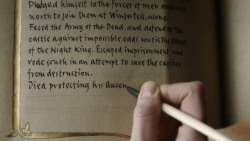 Pledged himself to the forces of men and rode
north to join them at Winterfell, alone.
Faced the Army of the Dead, and defended the
castle against impossible odds until the defeat
of the Night King. Escaped imprisonment and
rode south in an attempt to save the capital
from destruction.
Died protecting his Queen